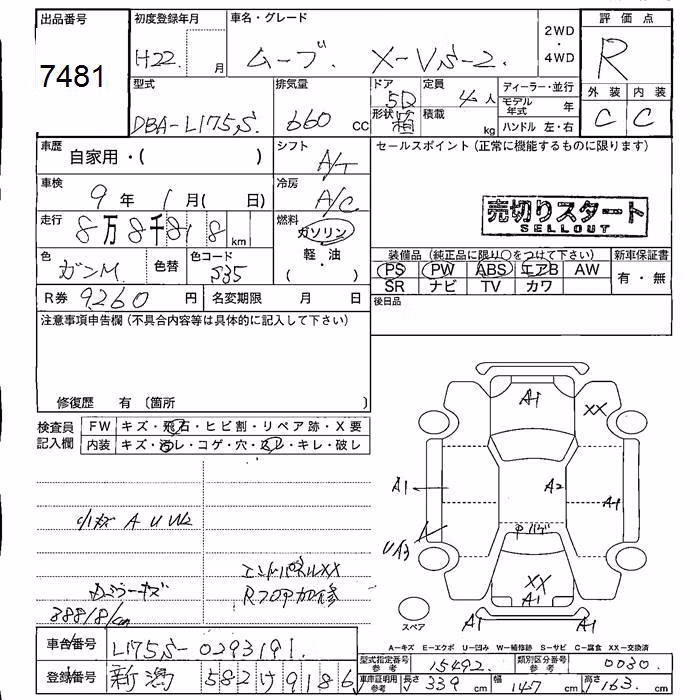 出品番号
7481
初度登録年月
H22. 月
車名・グレード
ムーブ X-VS-2.
2WD
・
4WD
評価点
R
外装 内装
C C
型式
DBA-L175S.
排気量
660 cc
ドア
5D
形状 箱
定員
4人
積載
kg
ディーラー・並行
モデル年式 年
ハンドル 左・右
車歴
自家用・( )
シフト
A/T
セールスポイント(正常に機能するものに限ります)
車検
9年 1月( 日)
冷房
A/C
走行
8万8千818 km
燃料
ガソリン
軽・油
( )
売切りスタート
SELLOUT
色
ガンM
色替
色コード
S35
装備品(純正品に限り○をつけて下さい)
PS PW ABS エアB AW
SR ナビ TV カワ
新車保証書
有・無
R券 9260 円
名変期限 月 日
後日品
注意事項申告欄(不具合内容等は具体的に記入して下さい)
修復歴 有 〔箇所 〕
検査員
記入欄
FW キズ・飛石・ヒビ割・リペア跡・X要
内装 キズ・汚レ・コゲ・穴・スレ・キレ・破レ
小キズ A U W2
エンドパネルXX
Rフロア加修
88818/km
A1
XX
A1
A2
A1
XX
A1
A1
A1
スペア
A−キズ E−エクボ U−凹み W−補修跡 S−サビ C−腐食 XX−交換済
車台番号
L175S-0293191.
登録番号
新潟 582け9186
型式指定番号
参考
15492.
類別区分番号
参考
0030.
車庫証明用
参考
長さ 339 cm
幅 147
高さ 163. cm